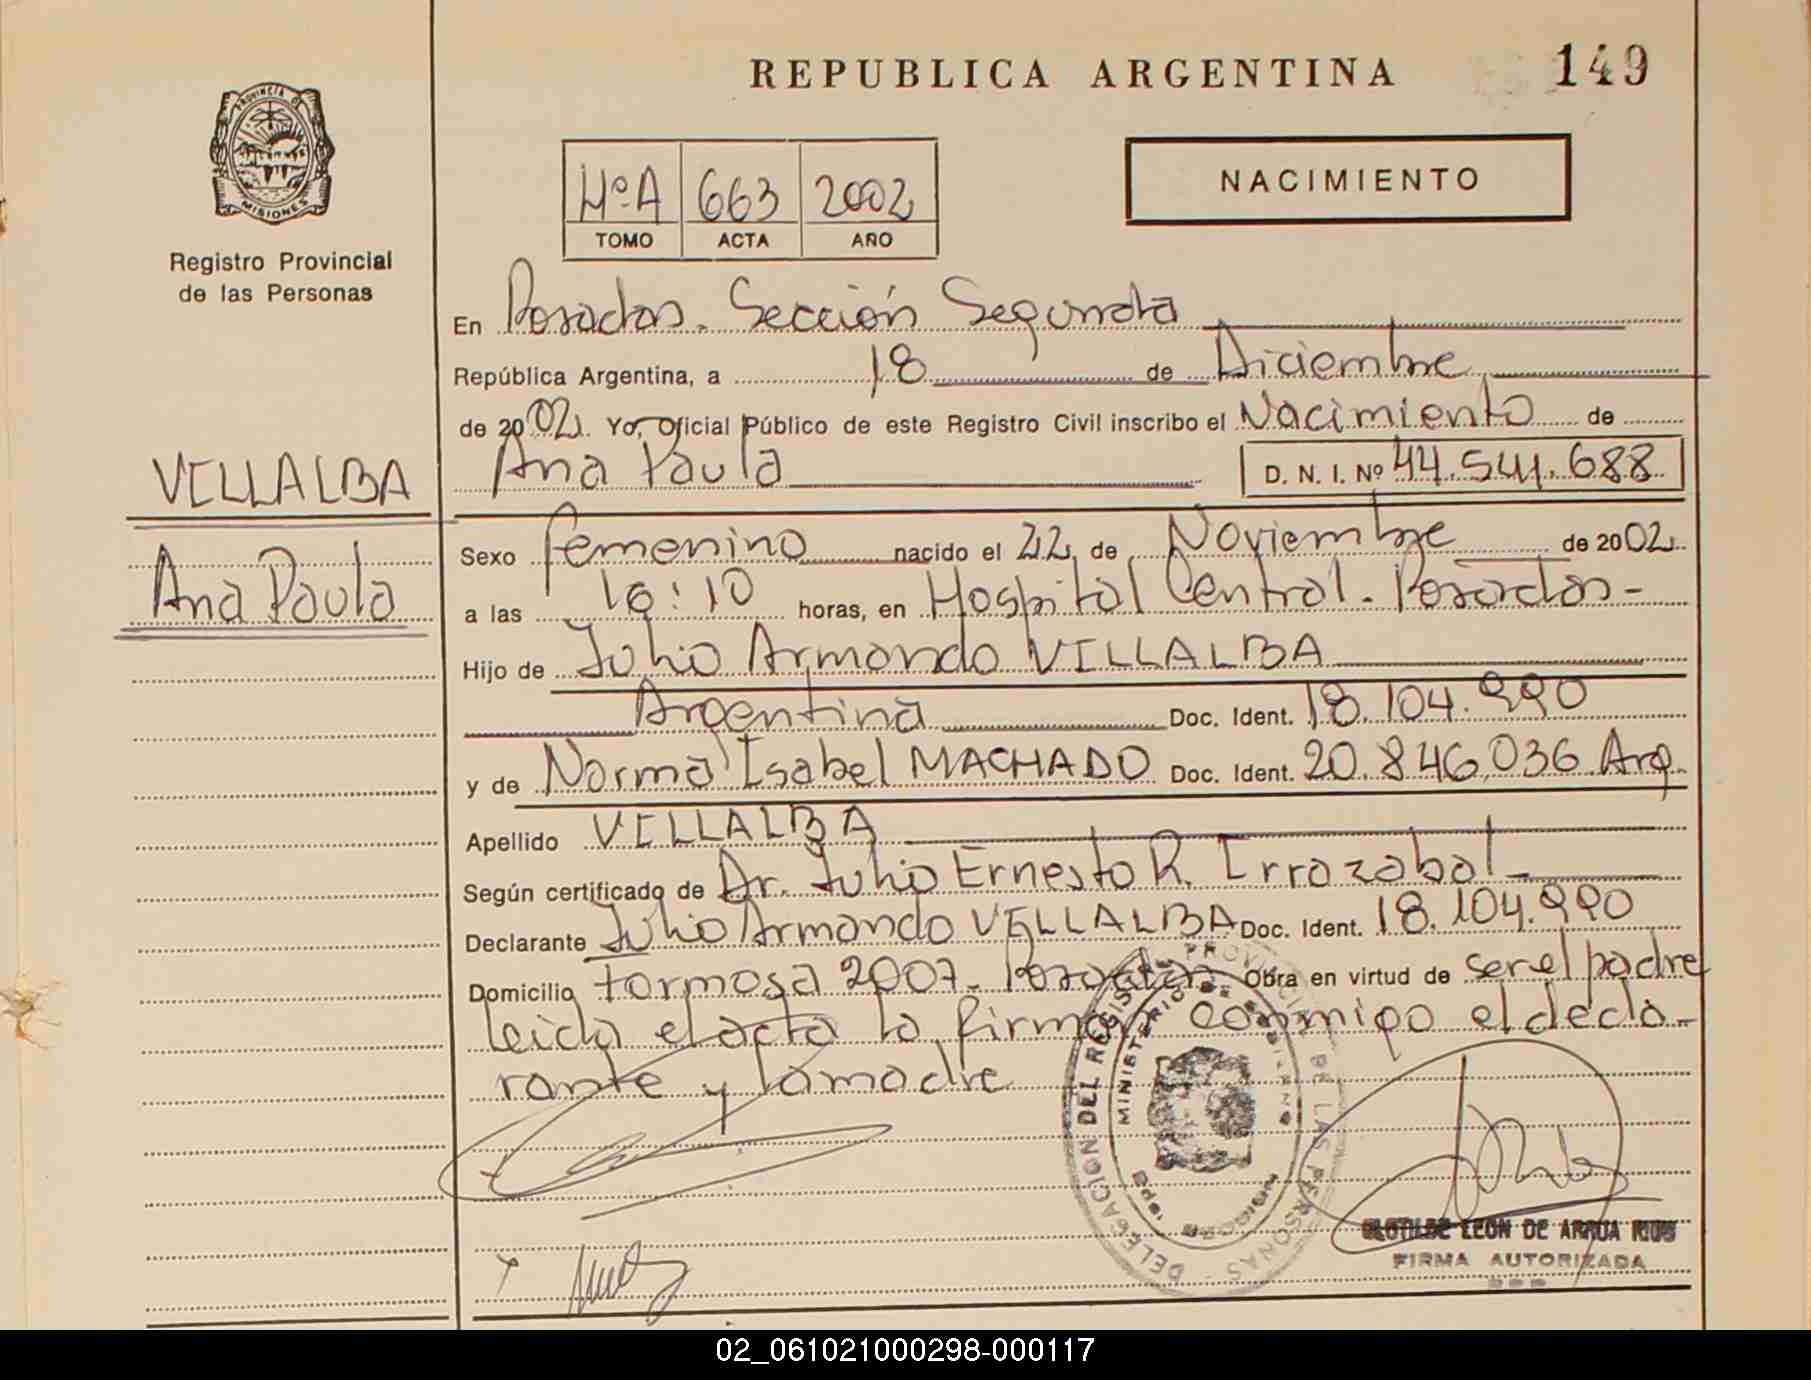 REPUBLICA ARGENTINA 149
PROVINCIA DE MISIONES
Registro Provincial
de las Personas
NACIMIENTO
4º A 663 2002
TOMO ACTA AÑO
En Posadas. Sección Segunda
República Argentina, a 18 de Diciembre
de 2002. Yo, Oficial Público de este Registro Civil inscribo el Nacimiento de
Ana Paula D. N. I. Nº 44.541.688
VILLALBA
Ana Paula
Sexo femenino nacido el 22 de Noviembre de 2002
a las horas, en Hospital Central. Posadas -
Hijo de Julio Armando VILLALBA
Argentina Doc. Ident. 18.104.990
y de Norma Isabel MACHADO Doc. Ident. 20.846.036 Arg.
Apellido VILLALBA
Según certificado de Dr. Julio Ernesto R. Irrazabal -
Declarante Julio Armando VILLALBA Doc. Ident. 18.104.990
Domicilio formosa 2007. Posadas Obra en virtud de ser el padre
leida el acta la firman conmigo el decla-
rante y la madre
DELEGACION DEL REGISTRO PROVINCIAL DE LAS PERSONAS
MINISTERIO DE GOBIERNO
MISIONES
CLOTILDE LEON DE ARRUA
FIRMA AUTORIZADA
02_061021000298-000117